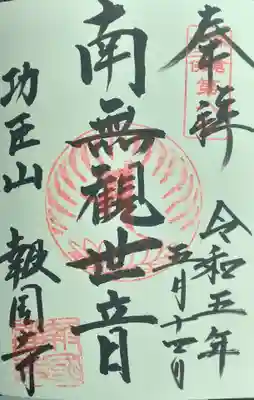 奉拝
令和五年
五月十四日
南無観世音
功臣山 報国寺